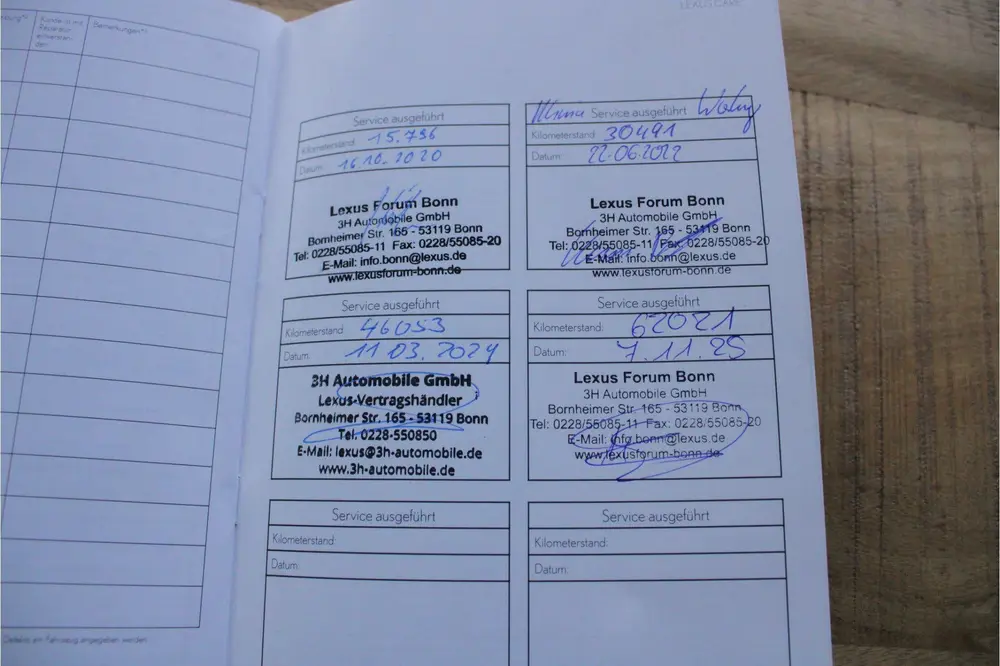 LEXUS CARE
Kunde ist mit
Reparatur
einverstan-
den
Bemerkungen*)
Service ausgeführt
Kilometerstand: 15.736
Datum: 16.10.2020
Lexus Forum Bonn
3H Automobile GmbH
Bornheimer Str. 165 - 53119 Bonn
Tel: 0228/55085-11 Fax: 0228/55085-20
E-Mail: info.bonn@lexus.de
www.lexusforum-bonn.de
Service ausgeführt
Kilometerstand: 30491
Datum: 22.06.2022
Lexus Forum Bonn
3H Automobile GmbH
Bornheimer Str. 165 - 53119 Bonn
Tel: 0228/55085-11 Fax: 0228/55085-20
E-Mail: info.bonn@lexus.de
www.lexusforum-bonn.de
Service ausgeführt
Kilometerstand: 46053
Datum: 11 03. 2024
3H Automobile GmbH
Lexus-Vertragshändler
Bornheimer Str. 165 - 53119 Bonn
Tel. 0228-550850
E-Mail: lexus@3h-automobile.de
www.3h-automobile.de
Service ausgeführt
Kilometerstand: 62021
Datum: 7.11.25
Lexus Forum Bonn
3H Automobile GmbH
Bornheimer Str. 165 - 53119 Bonn
Tel: 0228/55085-11 Fax: 0228/55085-20
E-Mail: info.bonn@lexus.de
www.lexusforum-bonn.de
Service ausgeführt
Kilometerstand:
Datum:
Service ausgeführt
Kilometerstand:
Datum:
ein Fahrzeug angegeben werden